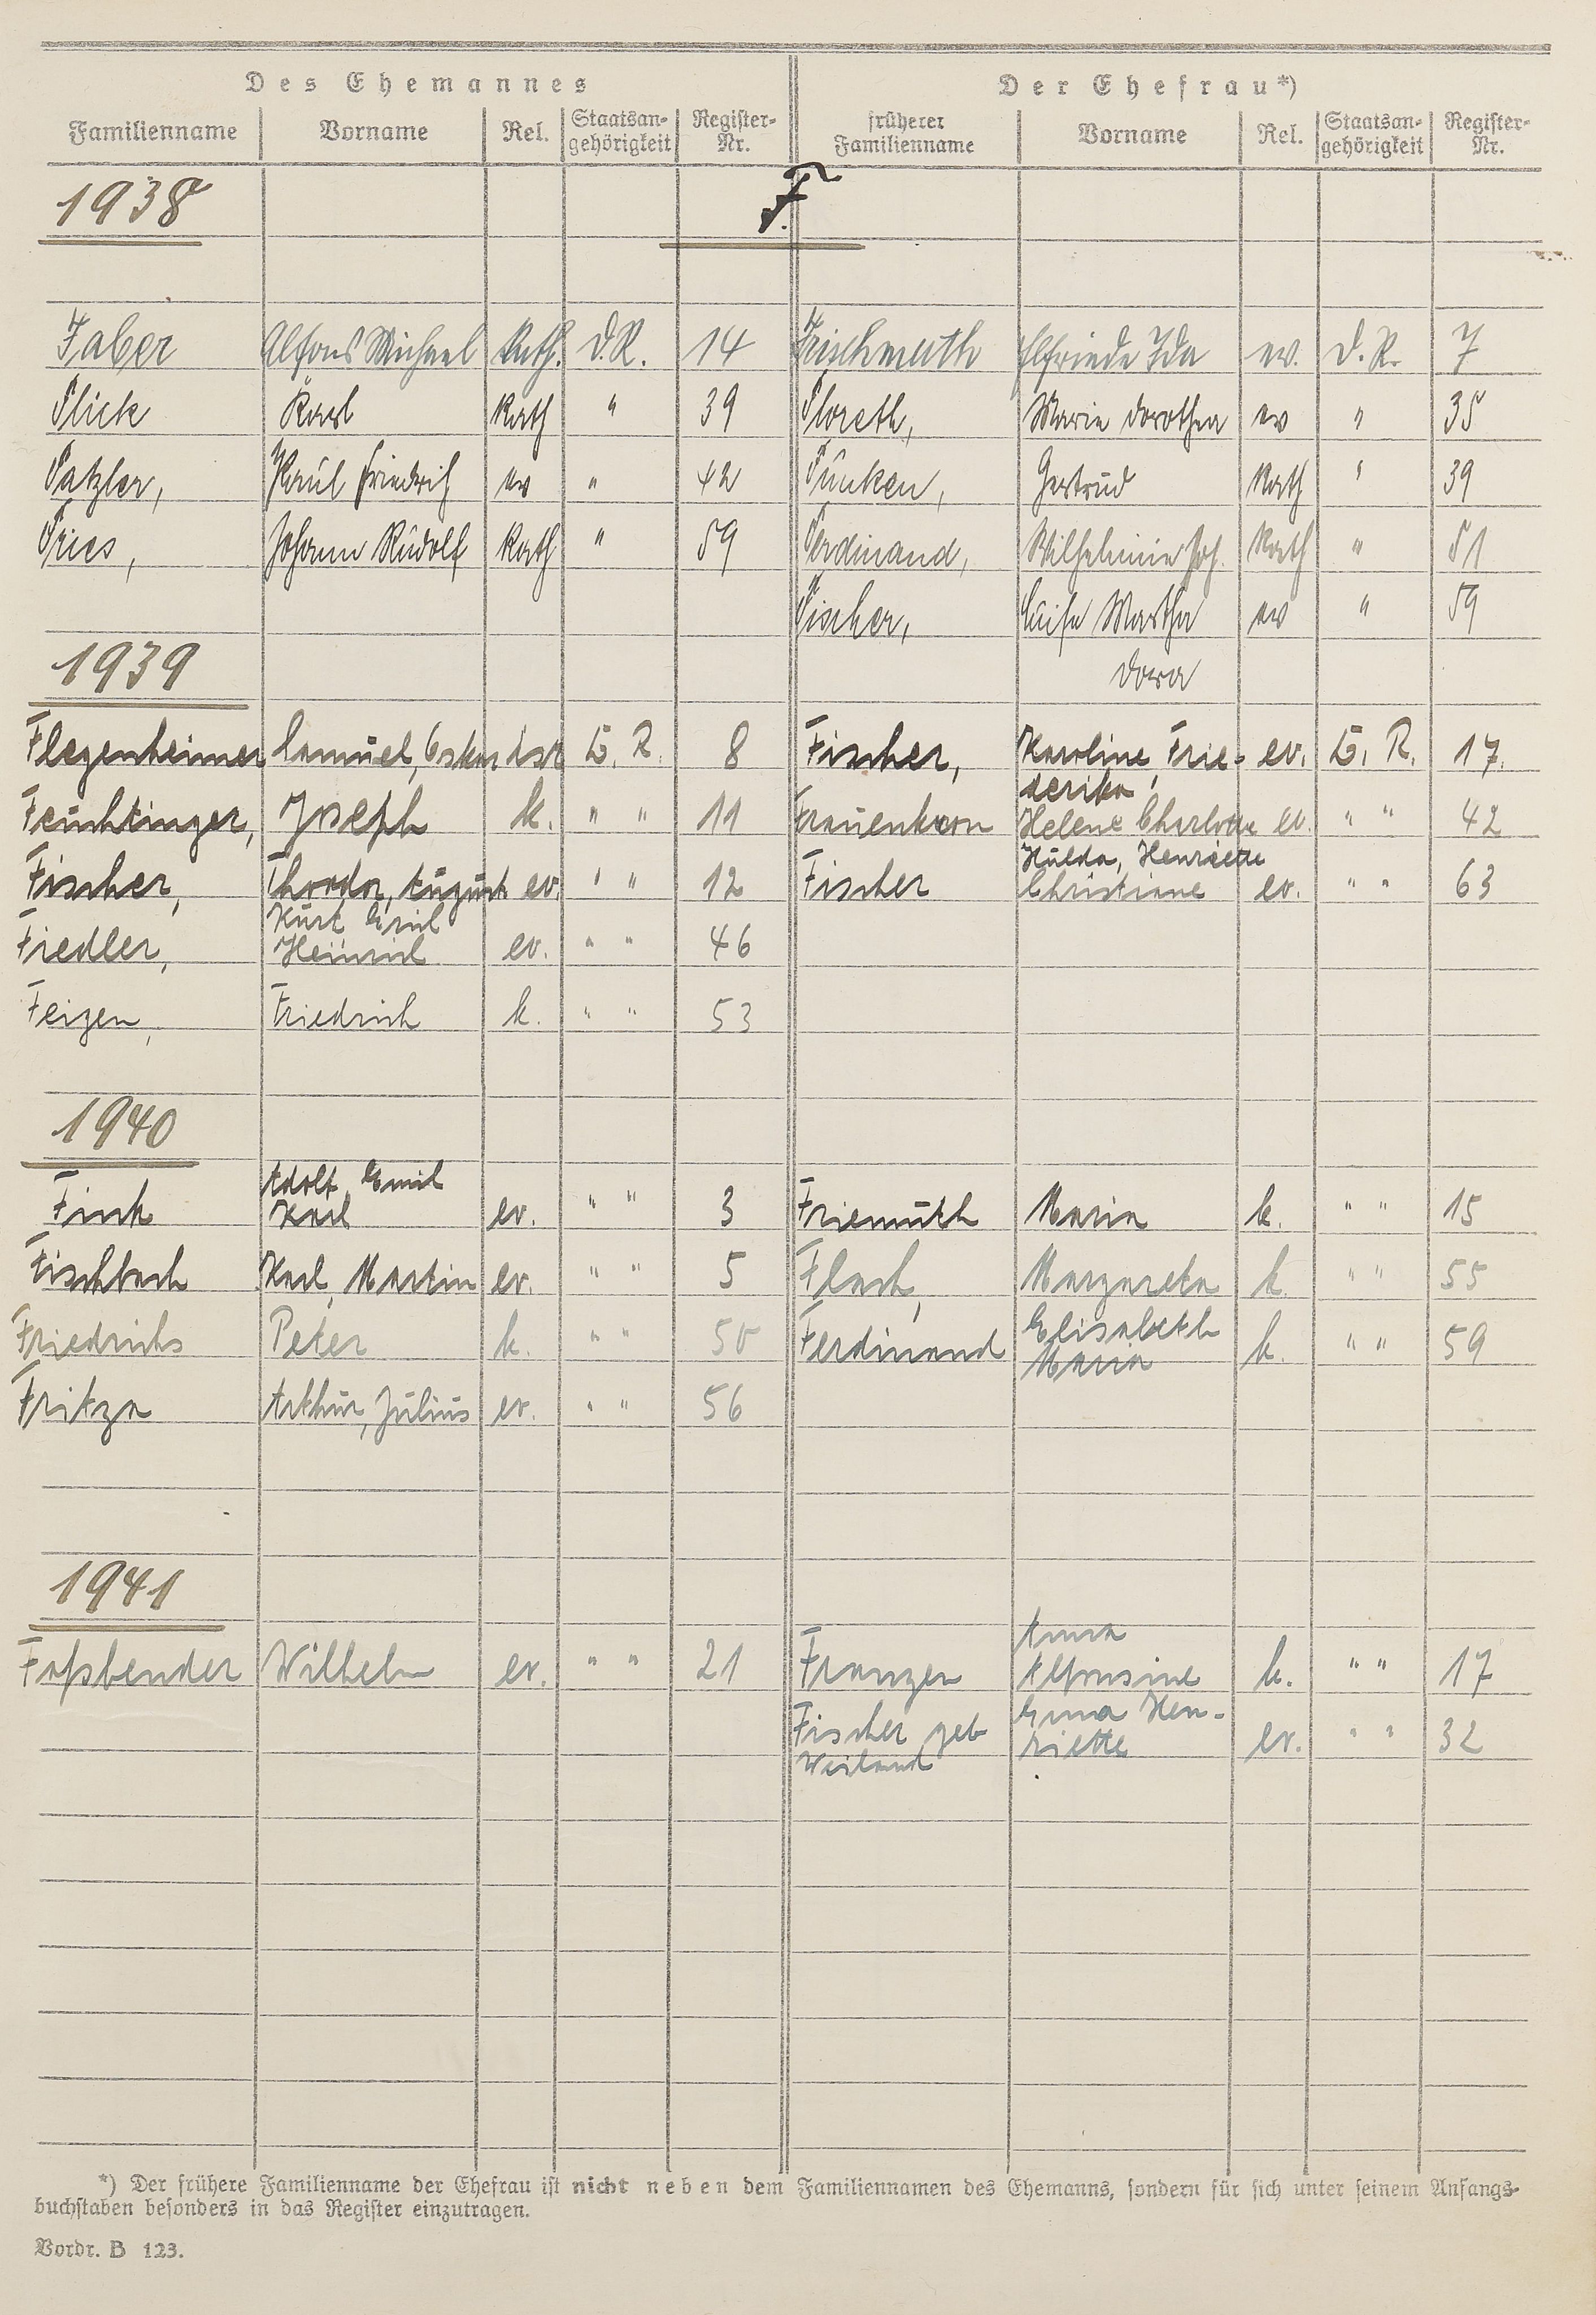 Des Ehemannes Der Ehefrau*)
Familienname Vorname Rel. Staatsan-gehörigkeit Register-Nr. früherer Familienname Vorname Rel. Staatsan-gehörigkeit Register-Nr.
1938 F.
Faber Alfons Michael Kath. D.R. 14 Frischmuth Elfriede Ida ev. D.R. 7
Flick Karl Kath " 39 Floreth, Marie Dorothea ev " 35
Fatzler, Paul Friedrich ev " 42 Fünken, Gertrud Kath " 39
Fries, Johann Rudolf Kath " 59 Ferdinand, Wilhelmine Joh. Kath " 51
Fischer, Luise Martha ev " 59
1939 Dora
Flegenheimer Samuel, Oskar isr D. R. 8 Fischer, Karoline, Frie- ev. D. R. 17.
derika,
Feuchtinger, Joseph k. " " 11 Frauenkron Helene Charlotte ev. " " 42
Hulda, Henriette
Fischer, Theodor, August ev. " " 12 Fischer Christiane ev. " " 63
Kurt Emil
Fiedler, Heinrich ev. " " 46
Feigen, Friedrich k. " " 53
1940
Adolf Emil
Fink Karl ev. " " 3 Friemuth Maria k. " " 15
Fischbach Karl, Martin ev. " " 5 Flach, Margareta k. " " 55
Elisabeth
Friedrichs Peter k. " " 50 Ferdinand Maria k. " " 59
Fritza Arthur, Julius ev. " " 56
1941
Anna
Faßbender Wilhelm ev. " " 21 Franzen Alfonsine k. " " 17
Fischer geb Erna Hen-
Weiland riette ev. " " 32
*) Der frühere Familienname der Ehefrau ist nicht neben dem Familiennamen des Ehemanns, sondern für sich unter seinem Anfangs-
buchstaben besonders in das Register einzutragen.
Vordr. B 123.